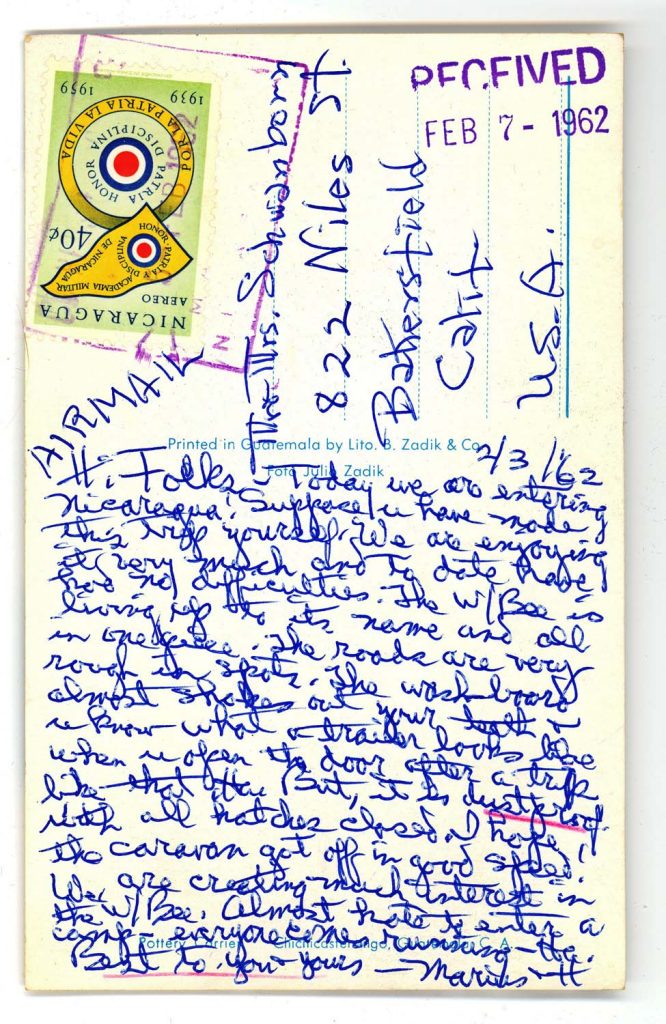 RECEIVED
FEB 7- 1962
1939 1959
POR LA PATRIA LA VIDA
PATRIA HONOR DISCIPLINA
40¢
HONOR·PATRIA Y DISCIPLINA
ACADEMIA MILITAR
DE NICARAGUA
AEREO
NICARAGUA
Mr & Mrs. Schwanborn
822 Niles St.
Bakersfield
Calif.
U.S.A.
AIRMAIL
Printed in Guatemala by Lito. B. Zadik & Co.
Foto Julio Zadik
2/3/62
Hi Folks - Today we are entering
Nicaragua. Suppose u have made
this trip yourself. We are enjoying
it very much and to date have
had no difficulties. The W/Bee is
living up to its name and all
in one piece. The roads are very
rough in spots. The wash-board
almost shakes out your teeth &
u know what a trailer looks like
when u open the door after a trip
like that. But, it is dustproof
with all hatches closed. I hope
the caravan got off in good speed!
We are creating much interest in
the W/Bee. Almost hate to enter a
camp - everyone comes running
Best to you-yours - Marius-H
Pottery Carrier Chichicastenango, Guatemala, C. A.